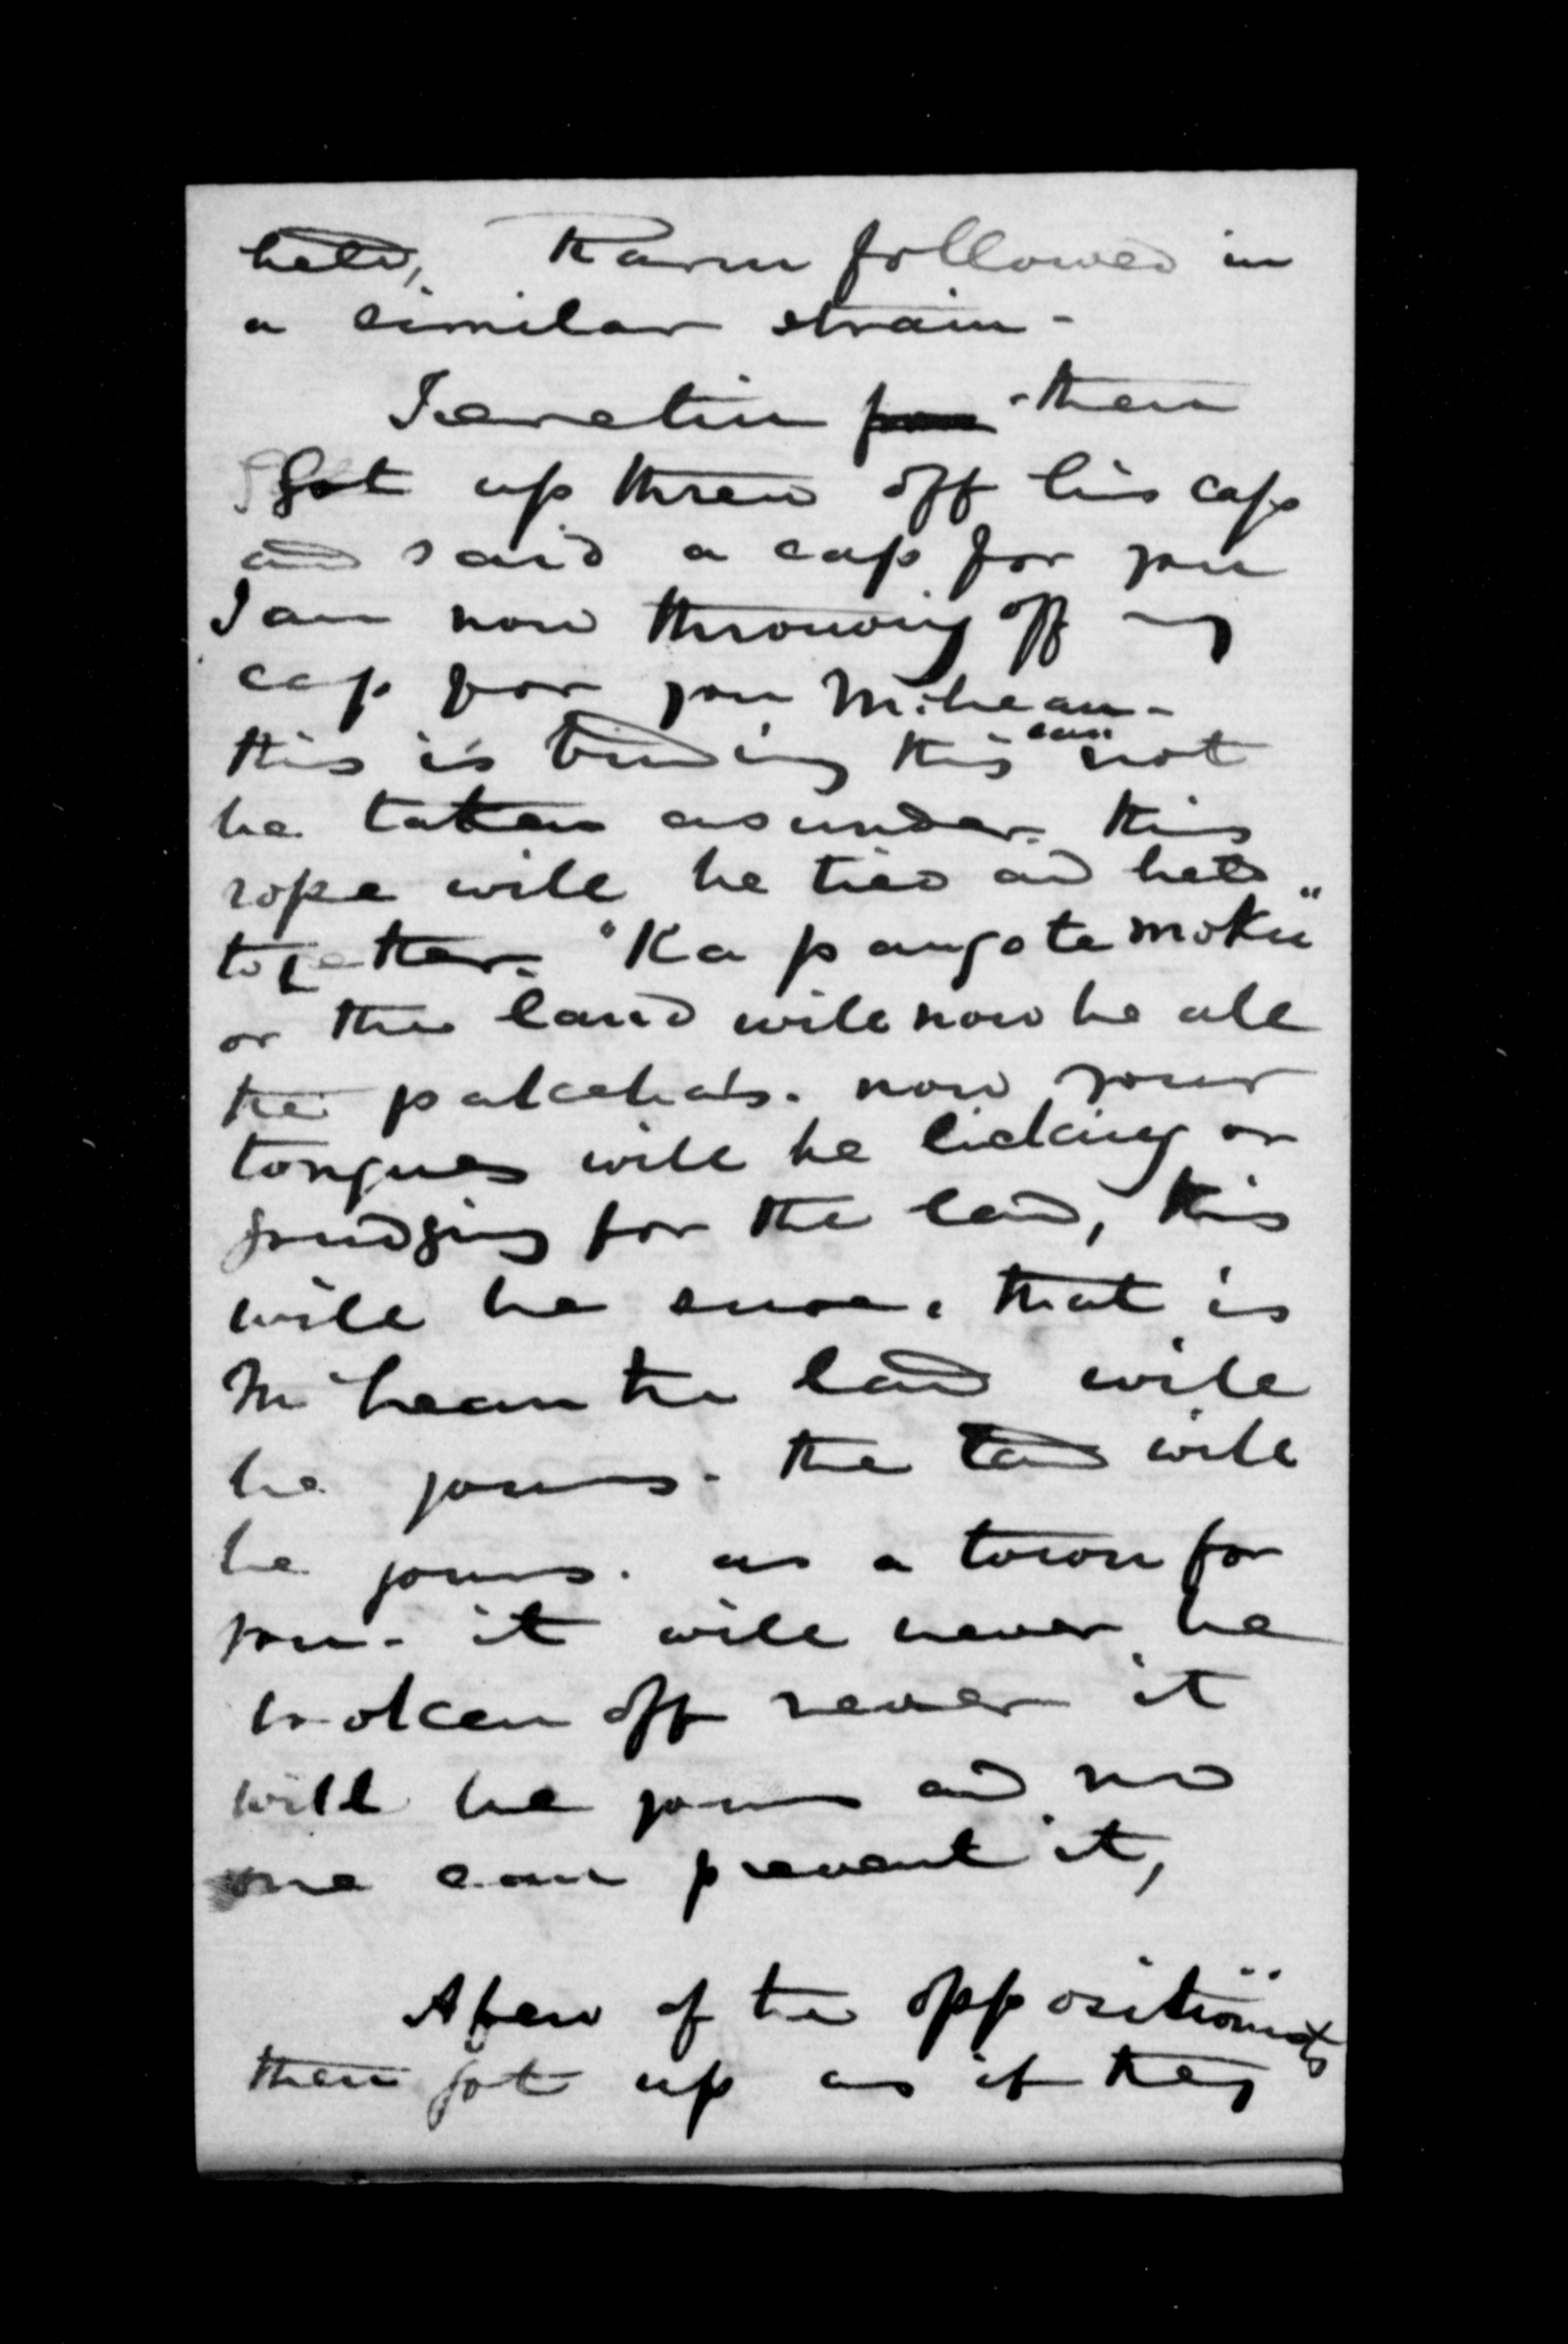 held, Karu followed in
a similar strain -
Ieretiu then
got up threw off his cap
and said a cap for you
I am now throwing off my
cap for you McLean -
this is binding this can not
be taken asunder. this
rope will be tied and held
together. "Ka pango te moku"
or the land will now be all
the pakeha's. now your
tongues will be licking or
grudging for the land, this
will be sure. that is
McLean the land will
be yours. the land will
be yours. as a town for
you. it will never be
broken off never it
will be yours and no
one can prevent it,
A few of the oppositionists
then got up as if they